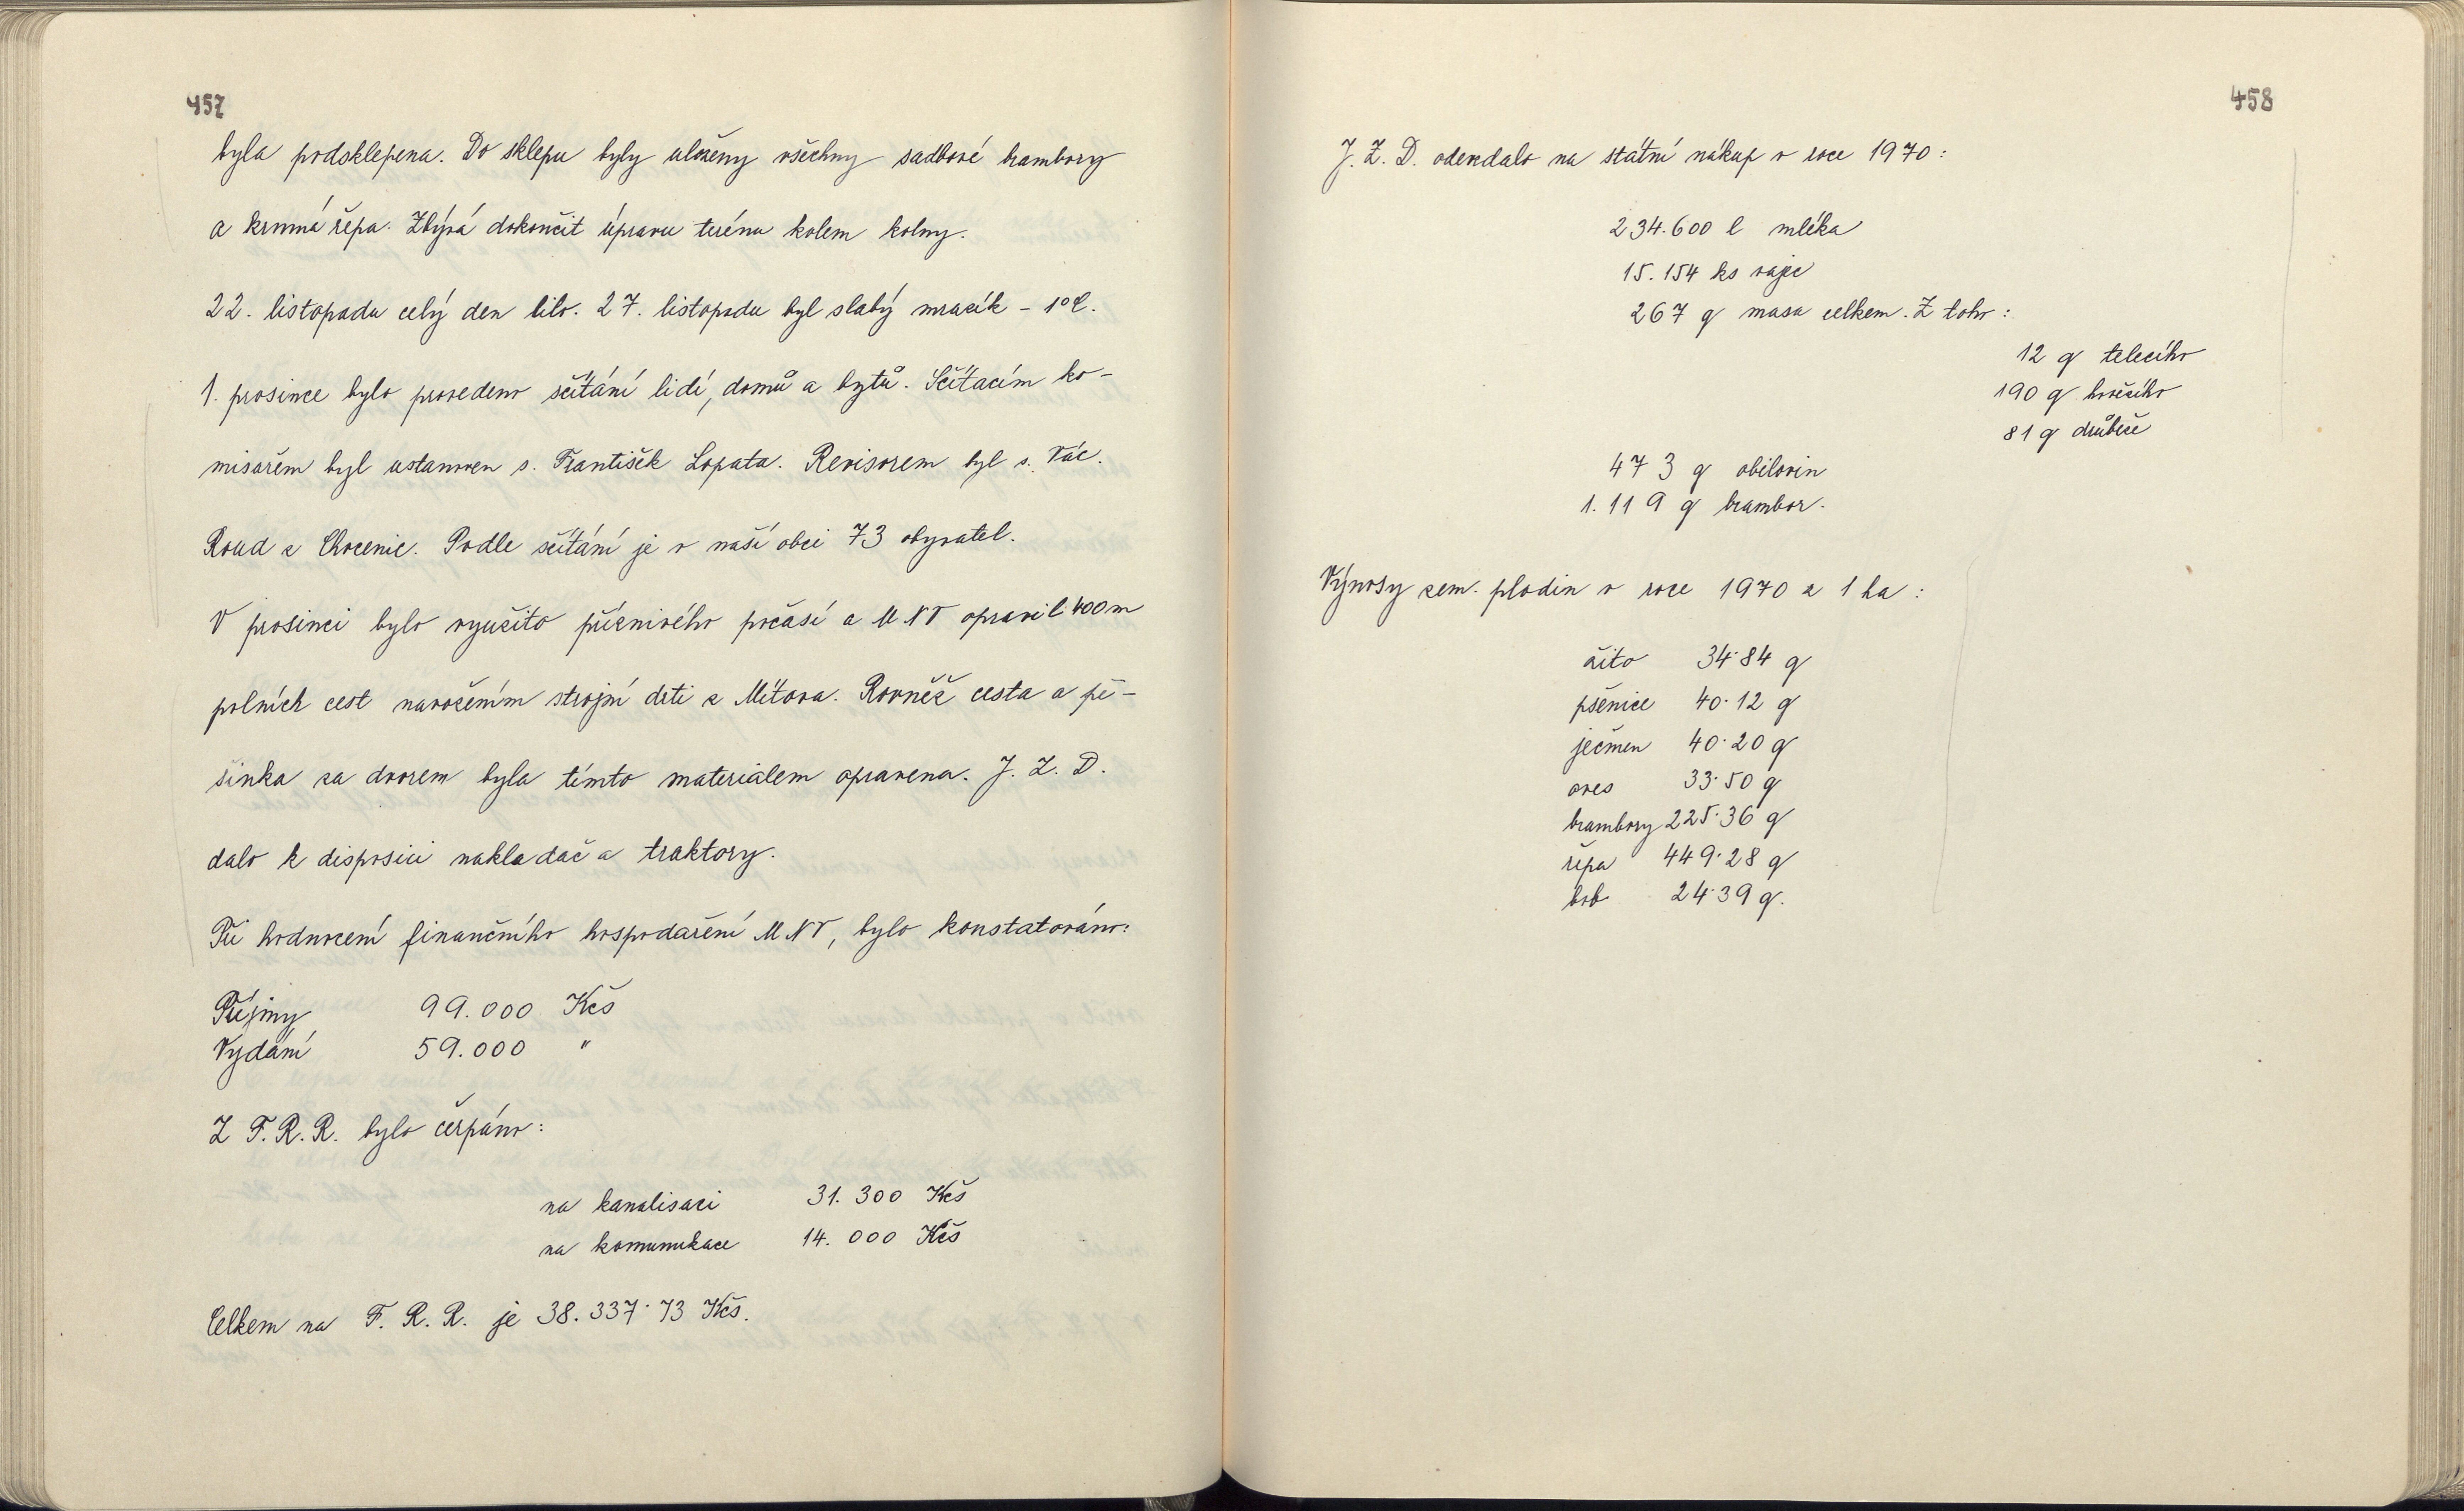 457
byla podsklepena. Do sklepu byly uloženy všechny sadbové brambory
a krmná řepa. Zbývá dokončit úpravu terénu kolem kolny.
22. listopadu celý den lilo. 27. listopadu byl slabý mrazík - 1°C.
1. prosince bylo provedeno sčítání lidí, domů a bytů. Sčítacím ko-
misařem byl ustanoven s. František Lopata. Revisorem byl s. Vác.
Roud z Chocenic. Podle sčítání je v naší obci 73 obyvatel.
V prosinci bylo využito příznivého počasí a MNV opravil 400 m
polních cest navožením strojní drti z Mítova. Rovněž cesta a pě-
šinka za dvorem byla tímto materiálem opravena. J. Z. D.
dalo k disposici nakladač a traktory.
Při hodnocení finančního hospodaření MNV, bylo konstatováno:
Příjmy 99.000 Kčs
Vydání 59.000 "
Z F. R. R. bylo čerpáno:
na kanalisaci 31.300 Kčs
na komunukace 14.000 Kčs
Celkem na F. R. R. je 38.337·73 Kčs.
458
J. Z. D. odevzdalo na státní nákup v roce 1970:
234.600 l mléka
15.154 ks vajec
267 q masa celkem. Z toho:
12 q telecího
190 q hovězího
81 q drůbeže
473 q obilovin
1.119 q brambor.
Výnosy zem. plodin v roce 1970 z 1 ha:
žito 34·84 q
pšenice 40·12 q
ječmen 40·20 q
oves 33·50 q
brambory 225·36 q
řepa 449·28 q
bob 24·39 q.